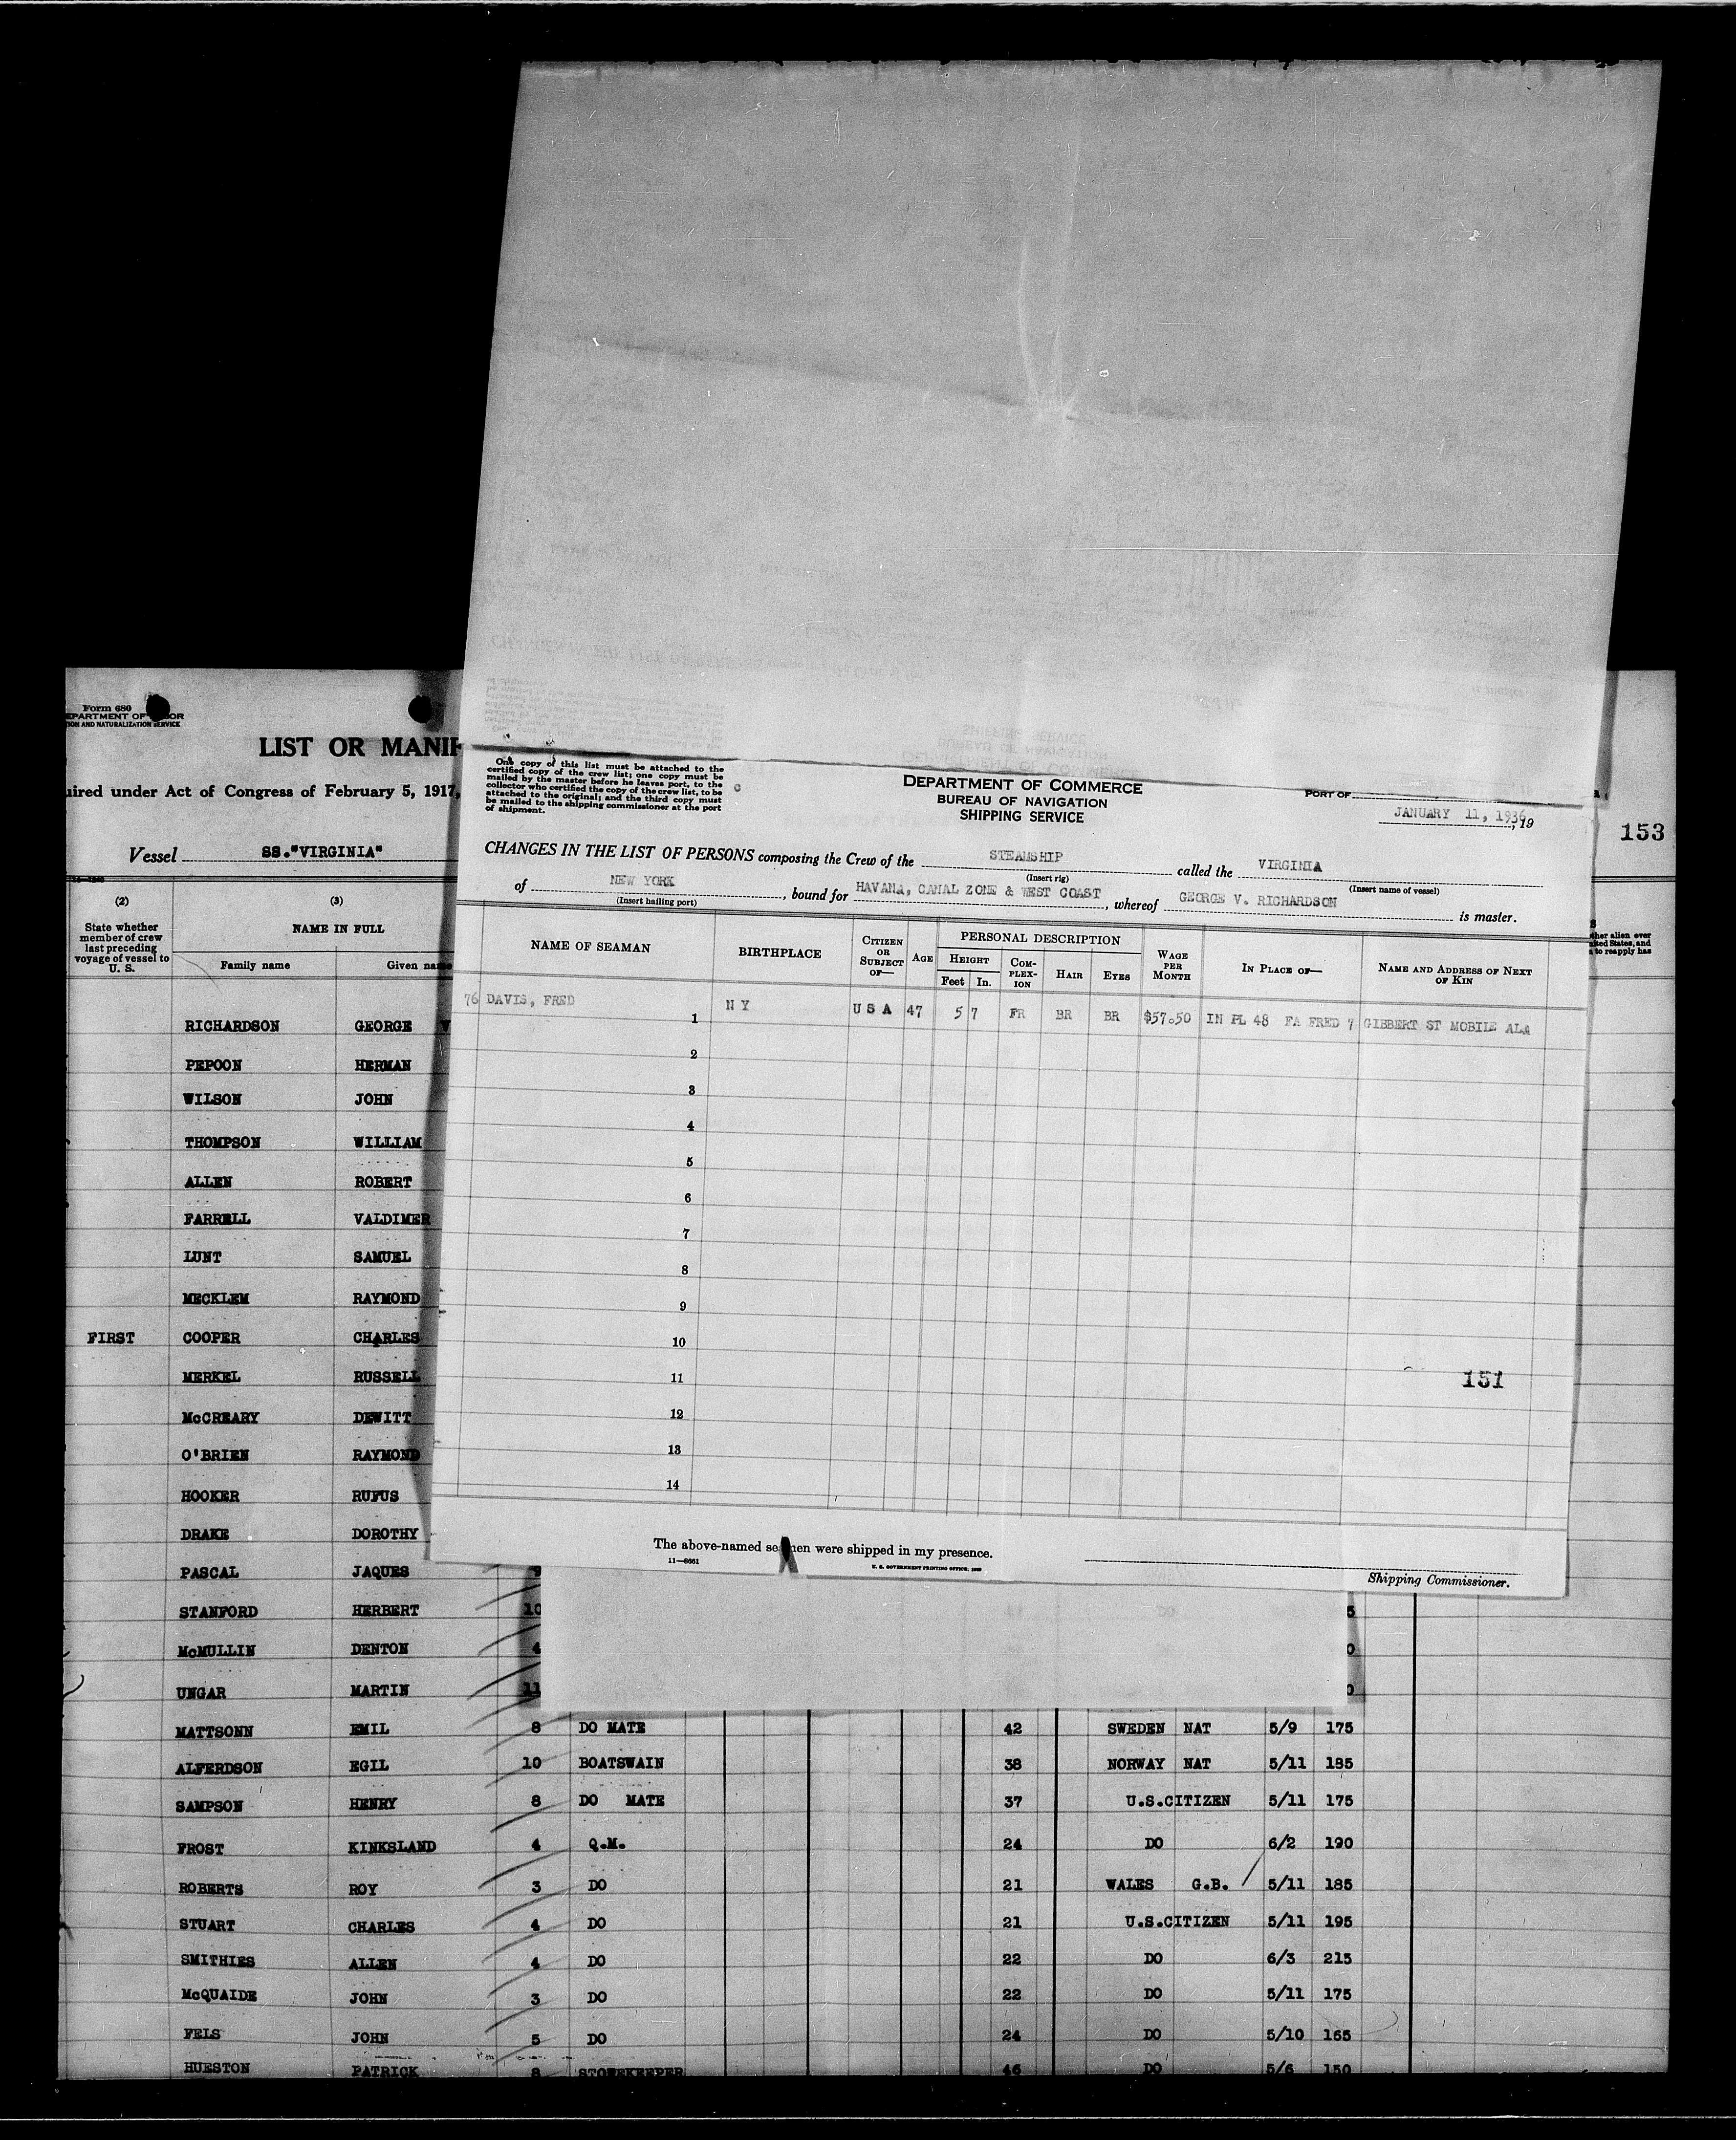 Form 680
DEPARTMENT OF LABOR
ION AND NATURALIZATION SERVICE
LIST OR MANIF
uired under Act of Congress of February 5, 1917,
Vessel SS."VIRGINIA"
153
(2)
State whether
member of crew
last preceding
voyage of vessel to
U. S.
(3)
NAME IN FULL
Family name Given name
ther alien ever
ited States, and
to reapply has
One copy of this list must be attached to the
certified copy of the crew list; one copy must be
mailed by the master before he leaves port, to the
collector who certified the copy of the crew list, to be
attached to the original; and the third copy must
be mailed to the shipping commissioner at the port
of shipment.
DEPARTMENT OF COMMERCE
BUREAU OF NAVIGATION
SHIPPING SERVICE
PORT OF
JANUARY 11, 1936, 19
CHANGES IN THE LIST OF PERSONS composing the Crew of the STEAMSHIP called the VIRGINIA
(Insert rig) (Insert name of vessel)
of NEW YORK, bound for HAVANA, CANAL ZONE & WEST COAST, whereof GEORGE V. RICHARDSON is master.
(Insert hailing port)
NAME OF SEAMAN BIRTHPLACE CITIZEN OR SUBJECT OF— AGE PERSONAL DESCRIPTION WAGE PER MONTH IN PLACE OF— NAME AND ADDRESS OF NEXT OF KIN
HEIGHT COM-PLEX-ION HAIR EYES
Feet In.
76 DAVIS, FRED 1 N Y U S A 47 5 7 FR BR BR $57.50 IN PL 48 FA FRED 7 GIBBERT ST MOBILE ALA
2
3
4
5
6
7
8
9
10
11
151
12
13
14
The above-named seamen were shipped in my presence.
11—8661 U. S. GOVERNMENT PRINTING OFFICE:
Shipping Commissioner.
RICHARDSON GEORGE V
PEPOON HERMAN
WILSON JOHN
THOMPSON WILLIAM
ALLEN ROBERT
FARRELL VALDIMER
LUNT SAMUEL
MECKLEM RAYMOND
FIRST COOPER CHARLES
MERKEL RUSSELL
McCREARY DEWITT
O'BRIEN RAYMOND
HOOKER RUFUS
DRAKE DOROTHY
PASCAL JAQUES 9
STANFORD HERBERT 10 5
McMULLIN DENTON 4 0
UNGAR MARTIN 11 0
MATTSONN EMIL 8 DO MATE 42 SWEDEN NAT 5/9 175
ALFERDSON EGIL 10 BOATSWAIN 38 NORWAY NAT 5/11 185
SAMPSON HENRY 8 DO MATE 37 U.S.CITIZEN 5/11 175
FROST KINKSLAND 4 Q.M. 24 DO 6/2 190
ROBERTS ROY 3 DO 21 WALES G.B. 5/11 185
STUART CHARLES 4 DO 21 U.S.CITIZEN 5/11 195
SMITHIES ALLEN 4 DO 22 DO 6/3 215
McQUAIDE JOHN 3 DO 22 DO 5/11 175
FELS JOHN 5 DO 24 DO 5/10 165
HUESTON PATRICK 8 STOREKEEPER 46 DO 5/6 150